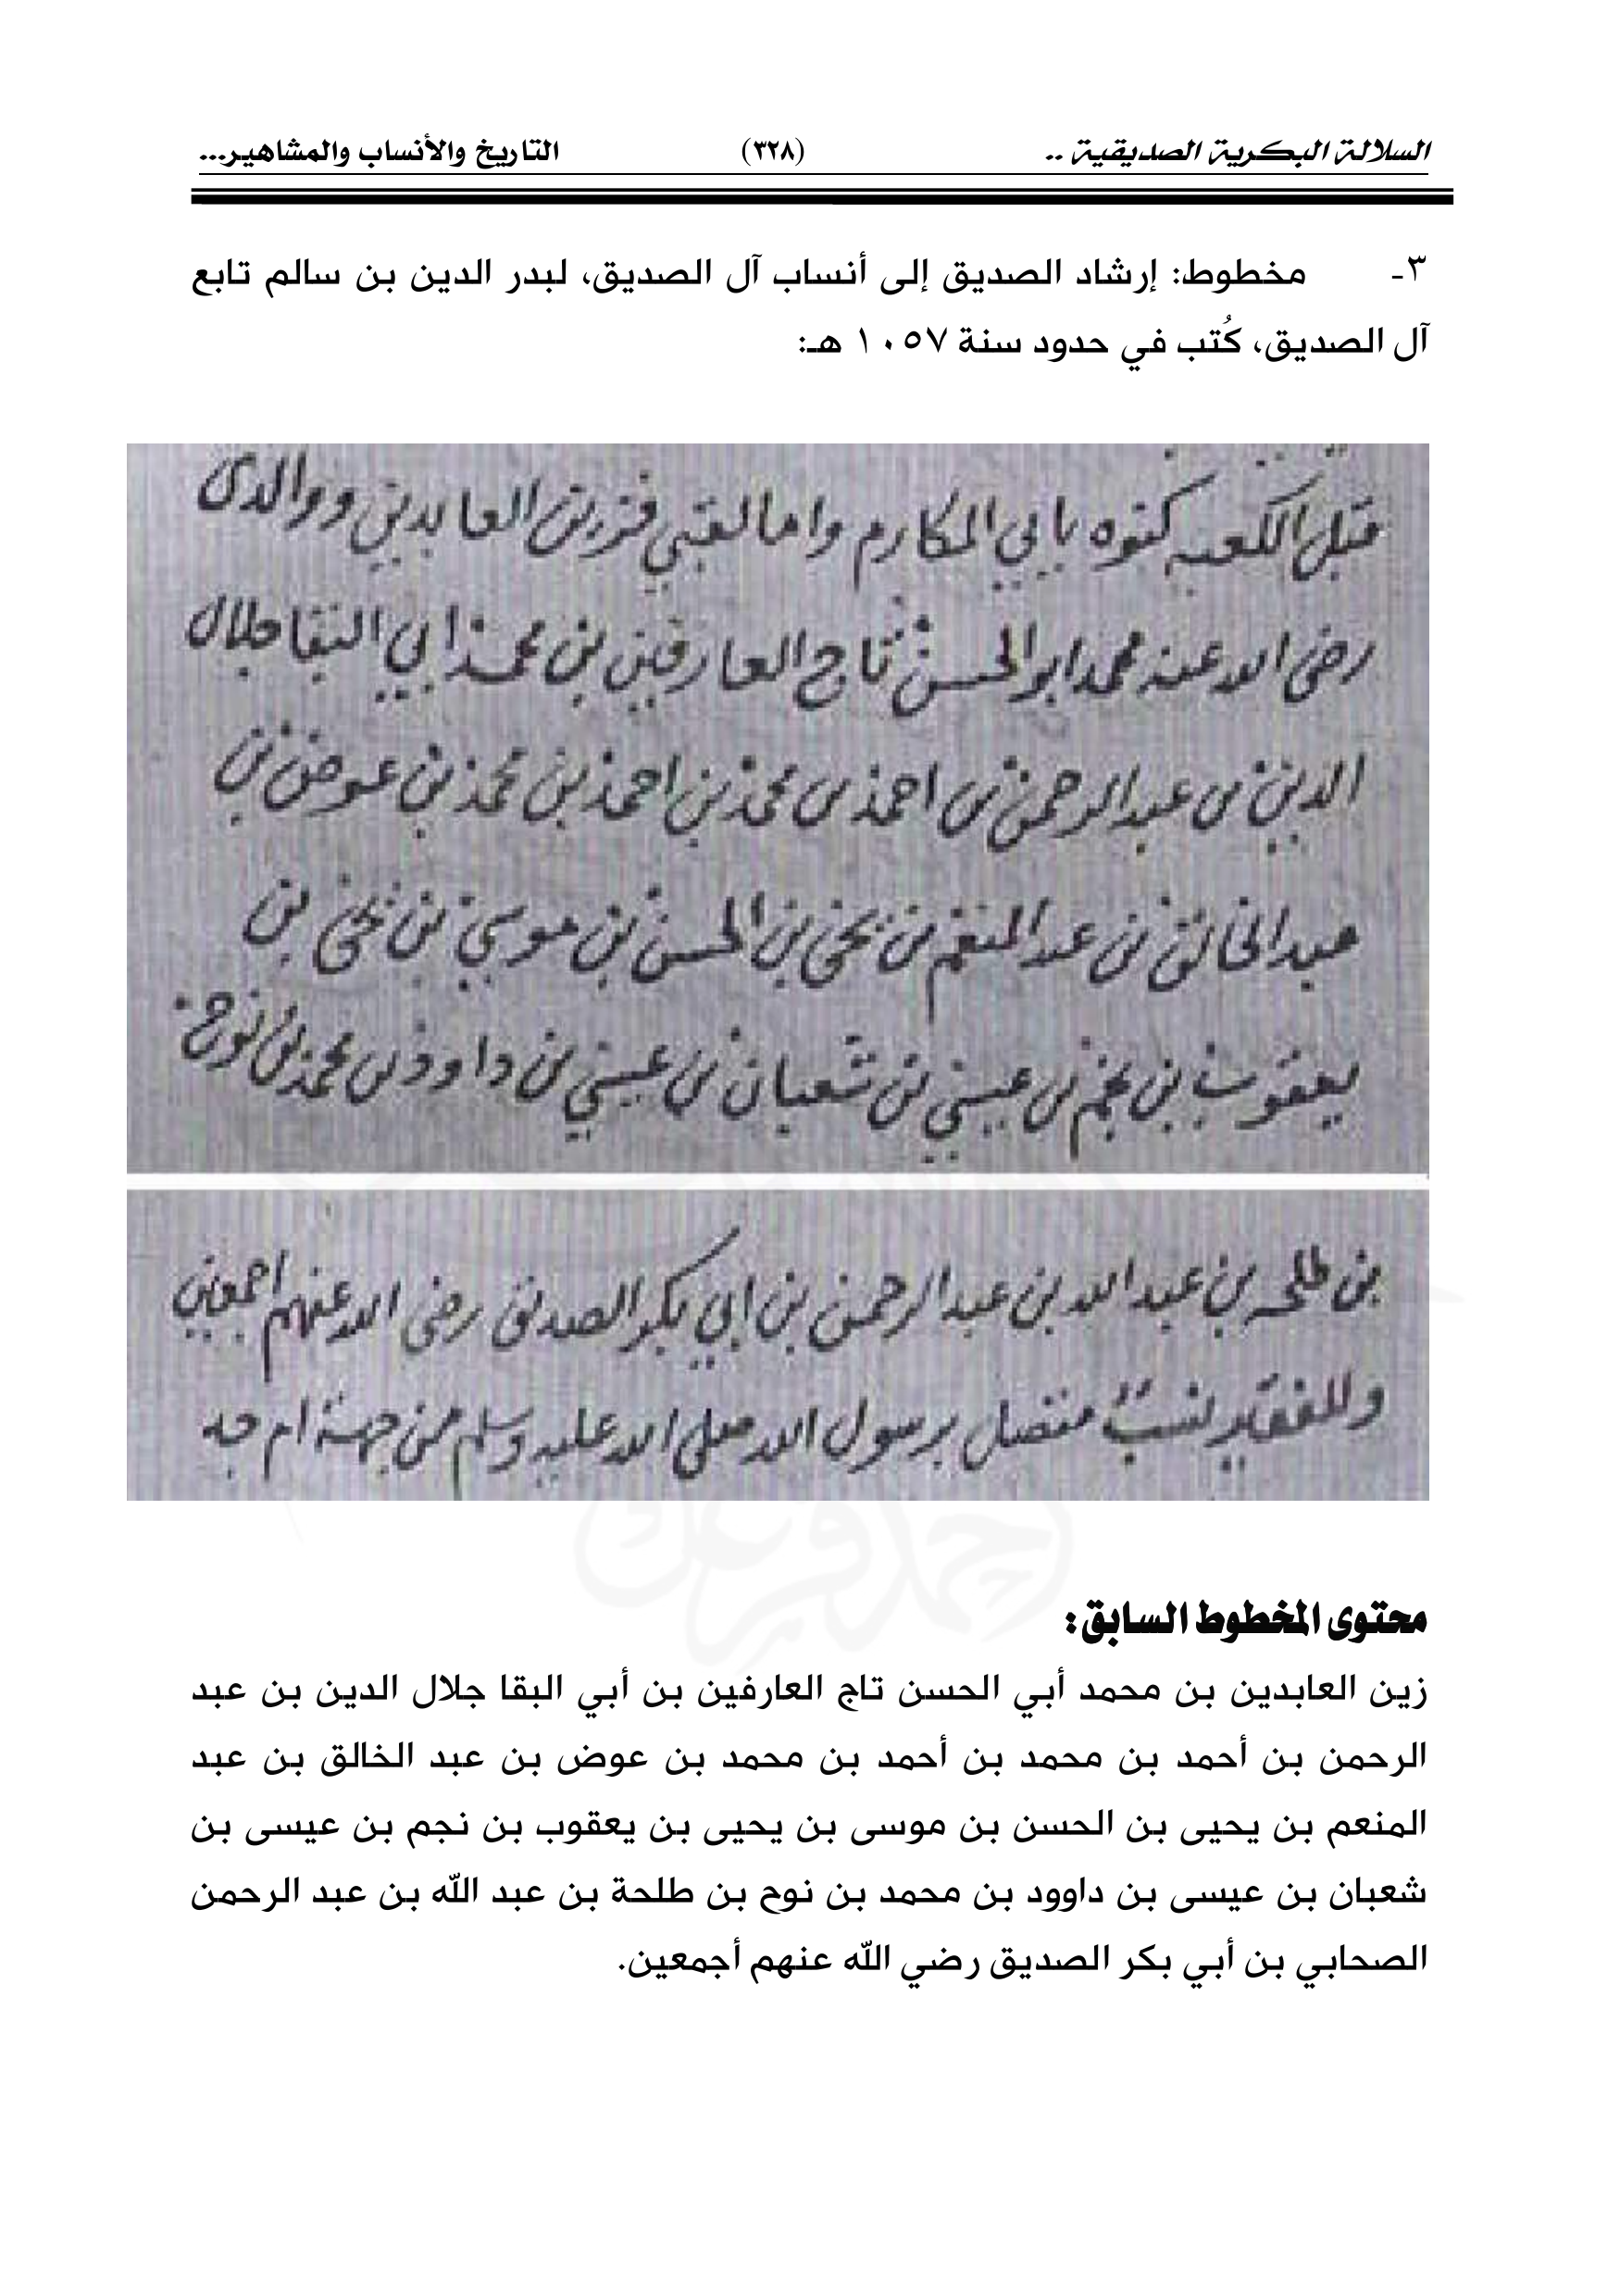 السلالة البكرية الصديقية .. (٣٢٨) التاريخ والأنساب والمشاهير...
٣- مخطوط: إرشاد الصديق إلى أنساب آل الصديق، لبدر الدين بن سالم تابع
آل الصديق، كُتب في حدود سنة ١٠٥٧ هـ:
قبل الكعبه كنوه بابي المكارم واما لقبي فزين العابدين ووالدى
رضى الله عنه محمد ابو الحسن تاج العارفين بن محمد ابي البقا جلال
الدين بن عبد الرحمن بن احمد بن محمد بن احمد بن محمد بن عوض بن
عبد الخالق بن عبد المنعم بن يحيى بن الحسن بن موسي بن يحيى بن
يعقوب بن نجم بن عيسي بن شعبان بن عيسي بن داوود بن محمد بن نوح
بن طلحه بن عبد الله بن عبد الرحمن بن ابي بكر الصديق رضى الله عنهم اجمعين
وللفقير نسب متصل برسول الله صلى الله عليه وسلم من جهة ام جد
محتوى المخطوط السابق:
زين العابدين بن محمد أبي الحسن تاج العارفين بن أبي البقا جلال الدين بن عبد
الرحمن بن أحمد بن محمد بن أحمد بن محمد بن عوض بن عبد الخالق بن عبد
المنعم بن يحيى بن الحسن بن موسى بن يحيى بن يعقوب بن نجم بن عيسى بن
شعبان بن عيسى بن داوود بن محمد بن نوح بن طلحة بن عبد الله بن عبد الرحمن
الصحابي بن أبي بكر الصديق رضي الله عنهم أجمعين.